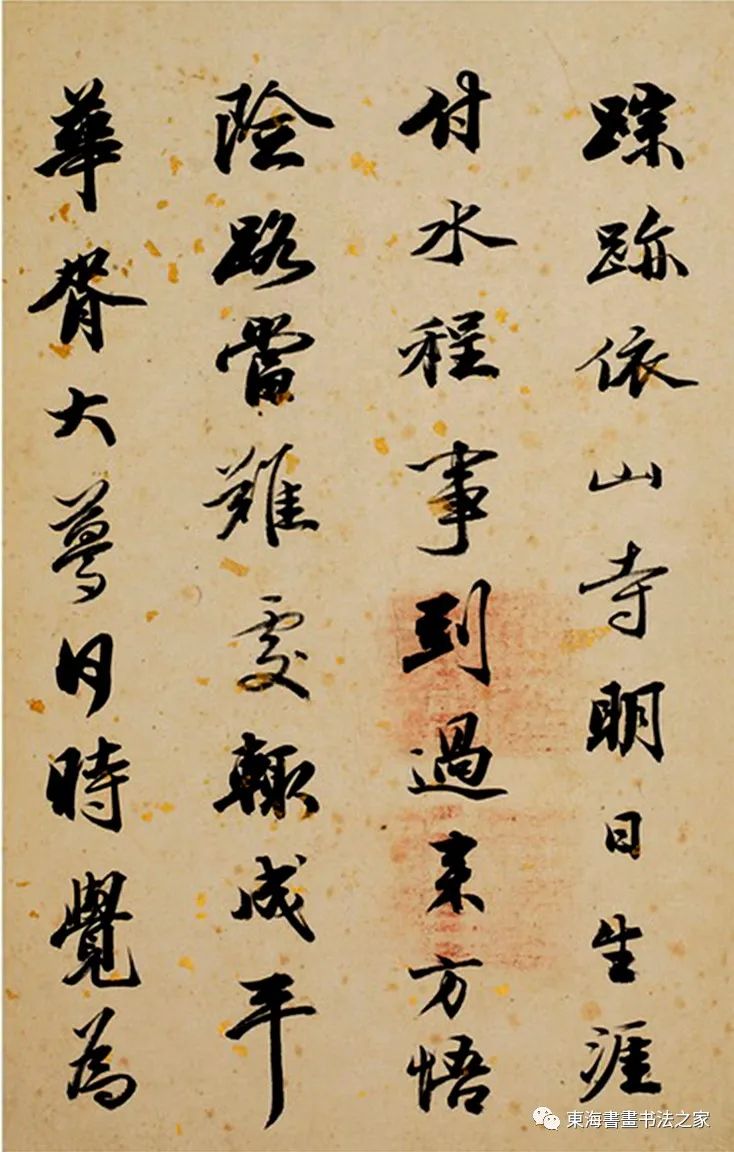 踪跡依山寺明日生涯
付水程事到過来方悟
險路當難處輙成平
華胥大夢何時覺為
東海書畫书法之家